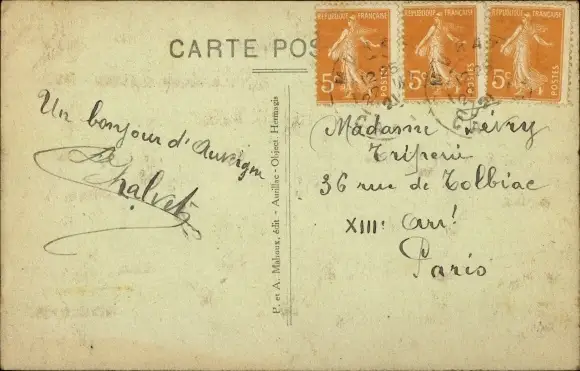 CARTE POS
REPUBLIQUE FRANÇAISE
5c
POSTES
REPUBLIQUE FRANÇAISE
5c
POSTES
REPUBLIQUE FRANÇAISE
5c
POSTES
Un bonjour d'Auvergne
Chalvet
P. et A. Malroux, édit - Aurillac - Object Hermagis
Madame Lévry
36 rue de Tolbiac
XIIIe Arr!
Paris